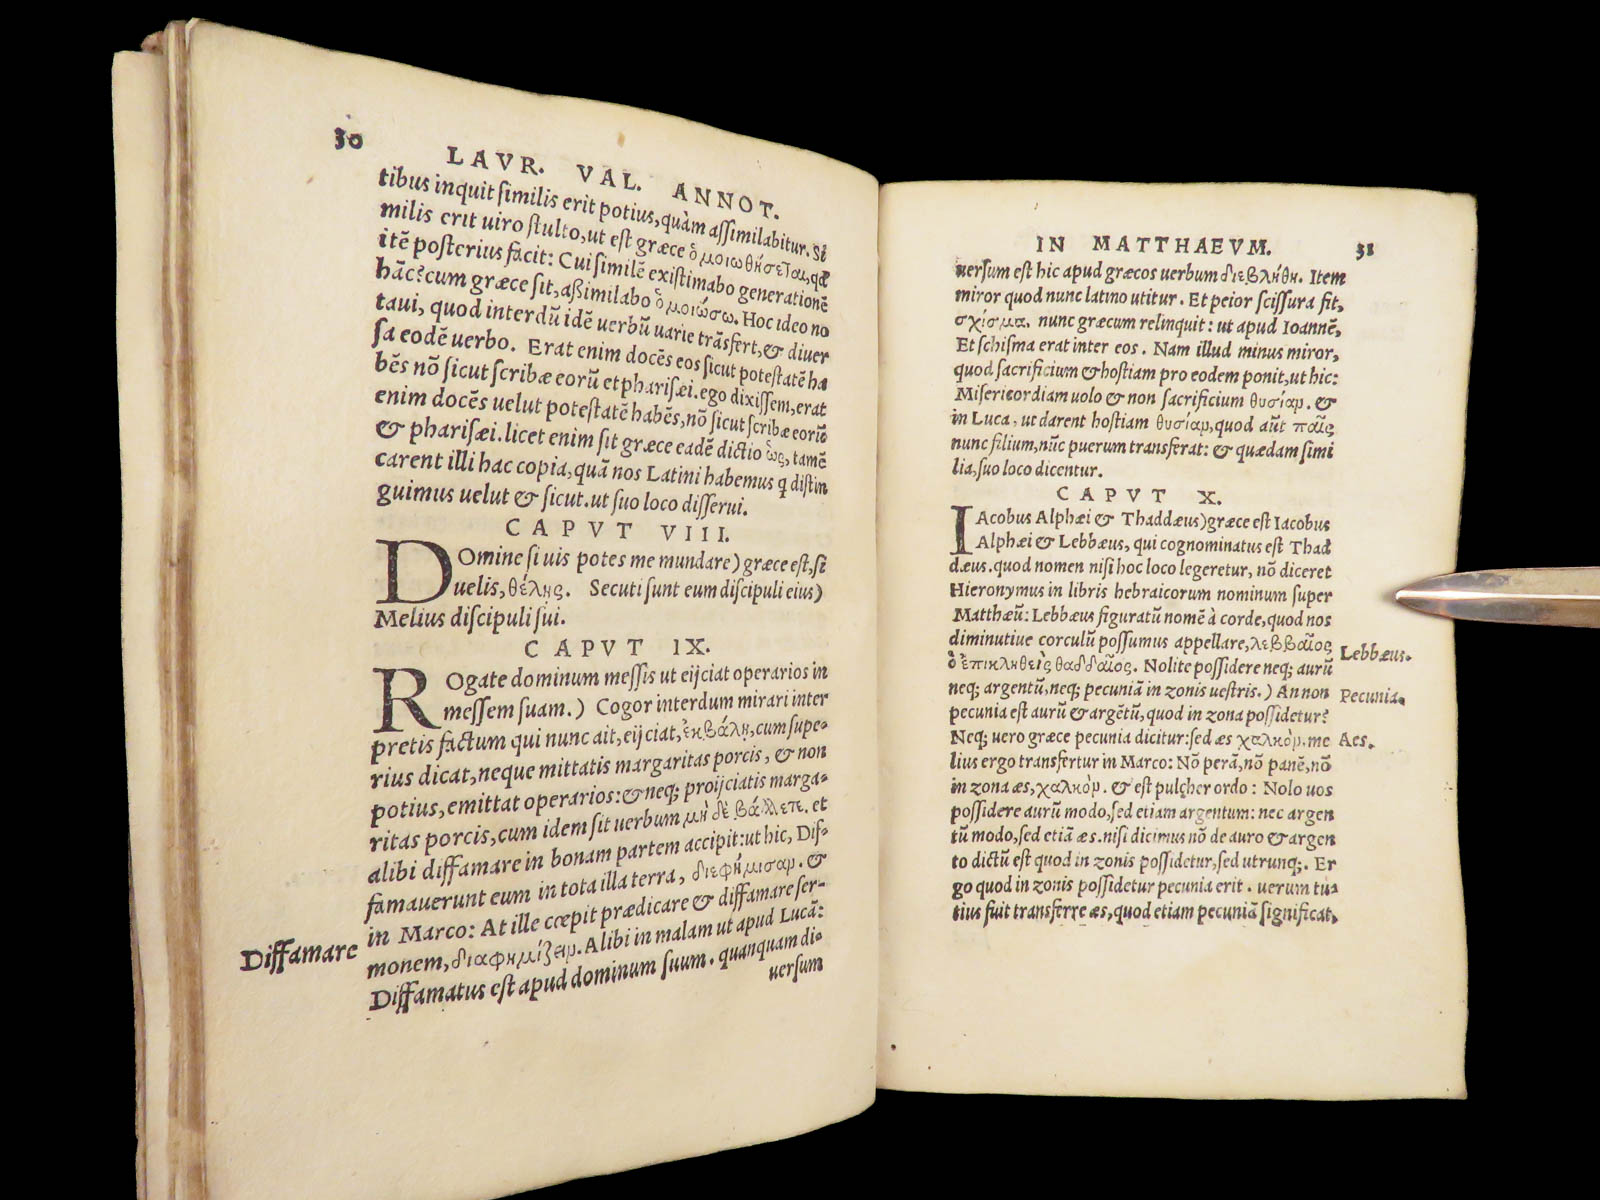 30
LAVR. VAL. ANNOT.
tibus inquit ſimilis erit potius, quàm aſſimilabitur. Si
milis erit uiro ſtulto, ut eſt græce ὁμοιωθήσεται, qd
itē poſterius facit: Cui ſimilē exiſtimabo generationē
hāc? cum græce ſit, aßimilabo ὁμοιώσω. Hoc ideo no
taui, quod interdū idē uerbū uarie trāsfert, & diuer
ſa eodē uerbo. Erat enim docēs eos ſicut poteſtatē ha
bēs nō ſicut ſcribæ eorū et phariſæi. ego dixiſſem, erat
enim docēs uelut poteſtatē habēs, nō ſicut ſcribæ eorū
& phariſæi. licet enim ſit græce eadē dictio ὡς, tamē
carent illi hac copia, quā nos Latini habemus q diſtin
guimus uelut & ſicut. ut ſuo loco diſſerui.
CAPVT VIII.
Domine ſi uis potes me mundare) græce eſt, ſi
uelis, θέλης. Secuti ſunt eum diſcipuli eius)
Melius diſcipuli ſui.
CAPVT IX.
Rogate dominum meſſis ut eijciat operarios in
meſſem ſuam.) Cogor interdum mirari inter
pretis factum qui nunc ait, eijciat, ἐκβάλῃ, cum ſupe-
rius dicat, neque mittatis margaritas porcis, & non
potius, emittat operarios: & neq; proijciatis marga-
ritas porcis, cum idem ſit uerbum μὴ δὲ βάλλετε. et
alibi diffamare in bonam partem accipit: ut hic, Dif-
famauerunt eum in tota illa terra, διεφήμισαν. &
in Marco: At ille cœpit prædicare & diffamare ſer-
monem, διαφημίζειν. Alibi in malam ut apud Lucā:
Diffamatus eſt apud dominum ſuum. quanquam di-
uerſum
Diffamare
IN MATTHAEVM.
31
uerſum eſt hic apud græcos uerbum διεβλήθη. Item
miror quod nunc latino utitur. Et peior ſciſſura fit,
σχίσμα. nunc græcum relinquit: ut apud Ioannē,
Et ſchiſma erat inter eos. Nam illud minus miror,
quod ſacrificium & hoſtiam pro eodem ponit, ut hic:
Miſericordiam uolo & non ſacrificium θυσίαν. &
in Luca, ut darent hoſtiam θυσίαν, quod aūt παῖς
nunc filium, nūc puerum transferat: & quædam ſimi
lia, ſuo loco dicentur.
CAPVT X.
IAcobus Alphæi & Thaddæus) græce eſt Iacobus
Alphæi & Lebbæus, qui cognominatus eſt Thad
dæus. quod nomen niſi hoc loco legeretur, nō diceret
Hieronymus in libris hebraicorum nominum ſuper
Matthæū: Lebbæus figuratū nomē à corde, quod nos
diminutiue corculū poſſumus appellare, λεββαῖος
ὁ ἐπικληθεὶς θαδδαῖος. Nolite poſſidere neq; aurū
neq; argentū, neq; pecuniā in zonis ueſtris.) An non
pecunia eſt aurū & argētū, quod in zona poſſidetur?
Neq; uero græce pecunia dicitur: ſed æs χαλκόν. me
lius ergo transfertur in Marco: Nō perā, nō panē, nō
in zona æs, χαλκὸν. & eſt pulcher ordo: Nolo uos
poſſidere aurū modo, ſed etiam argentum: nec argen
tū modo, ſed etiā æs. niſi dicimus nō de auro & argen
to dictū eſt quod in zonis poſſidetur, ſed utrunq;. Er
go quod in zonis poſſidetur pecunia erit. uerum tu-
tius fuit transferre æs, quod etiam pecuniā ſignificat,
Lebbæus.
Pecunia.
Aes.